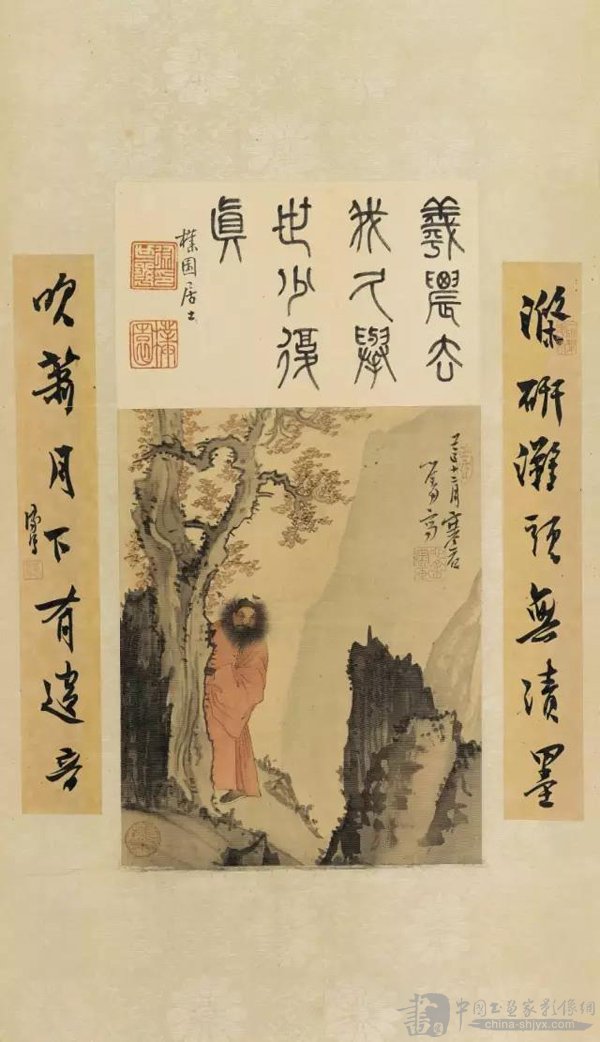 羲農去
我久舉
世少復
真
樸園居士
滌硏灘頭無漬墨
吹簫月下有遺音
十二月
中国书画家影像網
china-shjyx.com